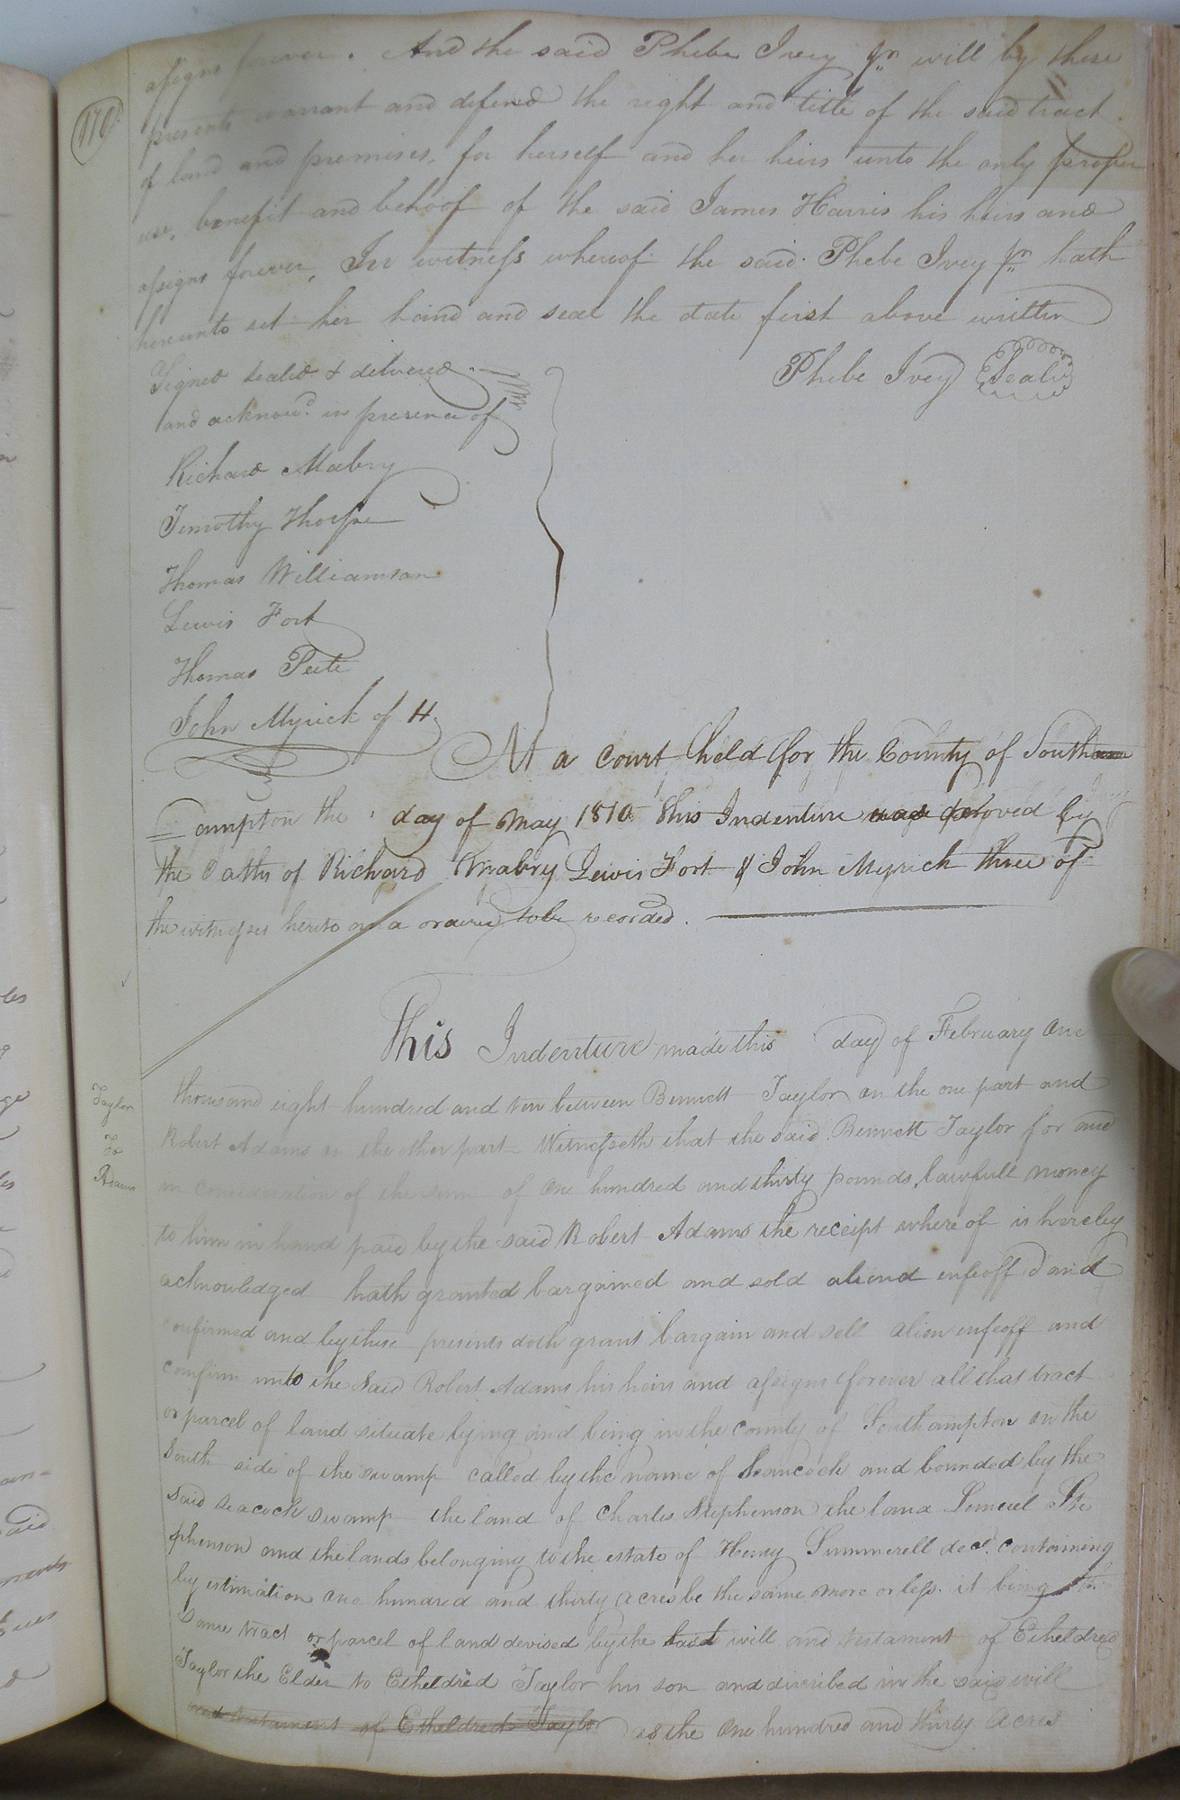 170
assigns forever. And the said Phebe Ivey jr. will by these
presents warrant and defend the right and title of the said tract
of land and premises, for herself and her heirs unto the only proper
use, benefit and behoof of the said James Harris his heirs and
assigns forever. In witness whereof the said Phebe Ivey jr. hath
hereunto set her hand and seal the date first above written
Signed sealed & delivered
Phebe Ivey Seal
and acknowd. in presence of
Richard Mabry
Timothy Thorpe
Thomas Williamson
Lewis Fort
Thomas Peete
John Myrick of H
At a Court held for the County of South
ampton the day of May 1810 this Indenture was proved by
the Oaths of Richard Mabry Lewis Fort & John Myrick three of
the witnesses hereto and ordered to be recorded.
This Indenture made this day of February One
Taylor
To
Adams
thousand eight hundred and ten between Bennett Taylor on the one part and
Robert Adams on the other part Witnesseth that the said Bennett Taylor for and
in consideration of the sum of One hundred and thirty pounds lawfull money
to him in hand paid by the said Robert Adams the receipt whereof is hereby
acknowledged hath granted bargained and sold aliend enfeoff'd and
confirmed and by these presents doth grant bargain and sell alien enfeoff and
confirm unto the said Robert Adams his heirs and assigns forever all that tract
or parcel of land situate lying and being in the county of Southampton on the
South side of the swamp called by the name of Seacock and bounded by the
said Seacock swamp the land of Charles Stephenson the land Lemuel Ste
phenson and the lands belonging to the estate of Henry Summerell decd. containing
by estimation one hundred and thirty acres be the same more or less it being the
same tract or parcel of land devised by the last will and testament of Etheldred
Taylor the Elder to Etheldred Taylor his son and discribed in the said will
and testament of Etheldred Taylor as the One hundred and thirty Acres